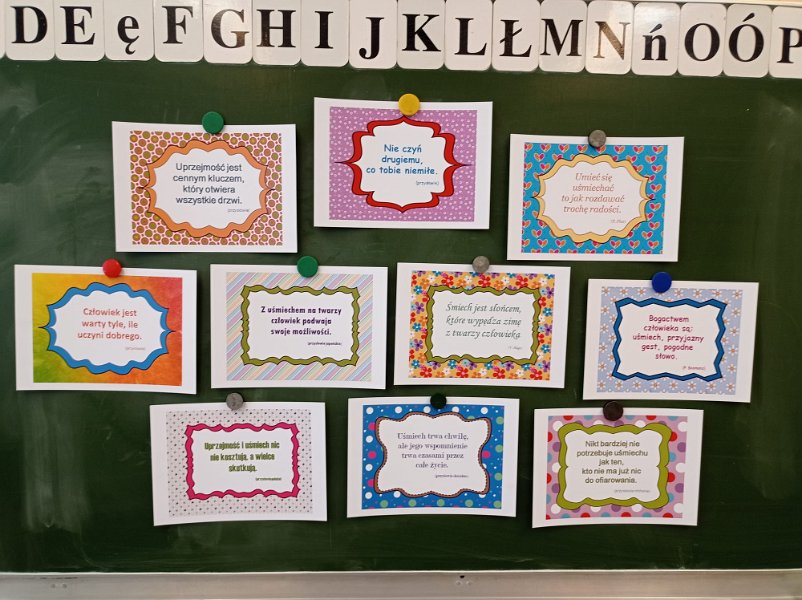 D E ę F G H I J K L Ł M N ń O Ó P
Uprzejmość jest
cennym kluczem,
który otwiera
wszystkie drzwi.
(przysłowie)
Nie czyń
drugiemu,
co tobie niemiłe.
(przysłowie)
Umieć się
uśmiechać
to jak rozdawać
trochę radości.
Człowiek jest
warty tyle, ile
uczyni dobrego.
(przysłowie)
Z uśmiechem na twarzy
człowiek podwaja
swoje możliwości.
(przysłowie japońskie)
Śmiech jest słońcem,
które wypędza zimę
z twarzy człowieka.
Bogactwem
człowieka są:
uśmiech, przyjazny
gest, pogodne
słowo.
Uprzejmość i uśmiech nic
nie kosztują, a wielce
skutkują.
Uśmiech trwa chwilę,
ale jego wspomnienie
trwa czasami przez
całe życie.
(przysłowie chińskie)
Nikt bardziej nie
potrzebuje uśmiechu
jak ten,
kto nie ma już nic
do ofiarowania.